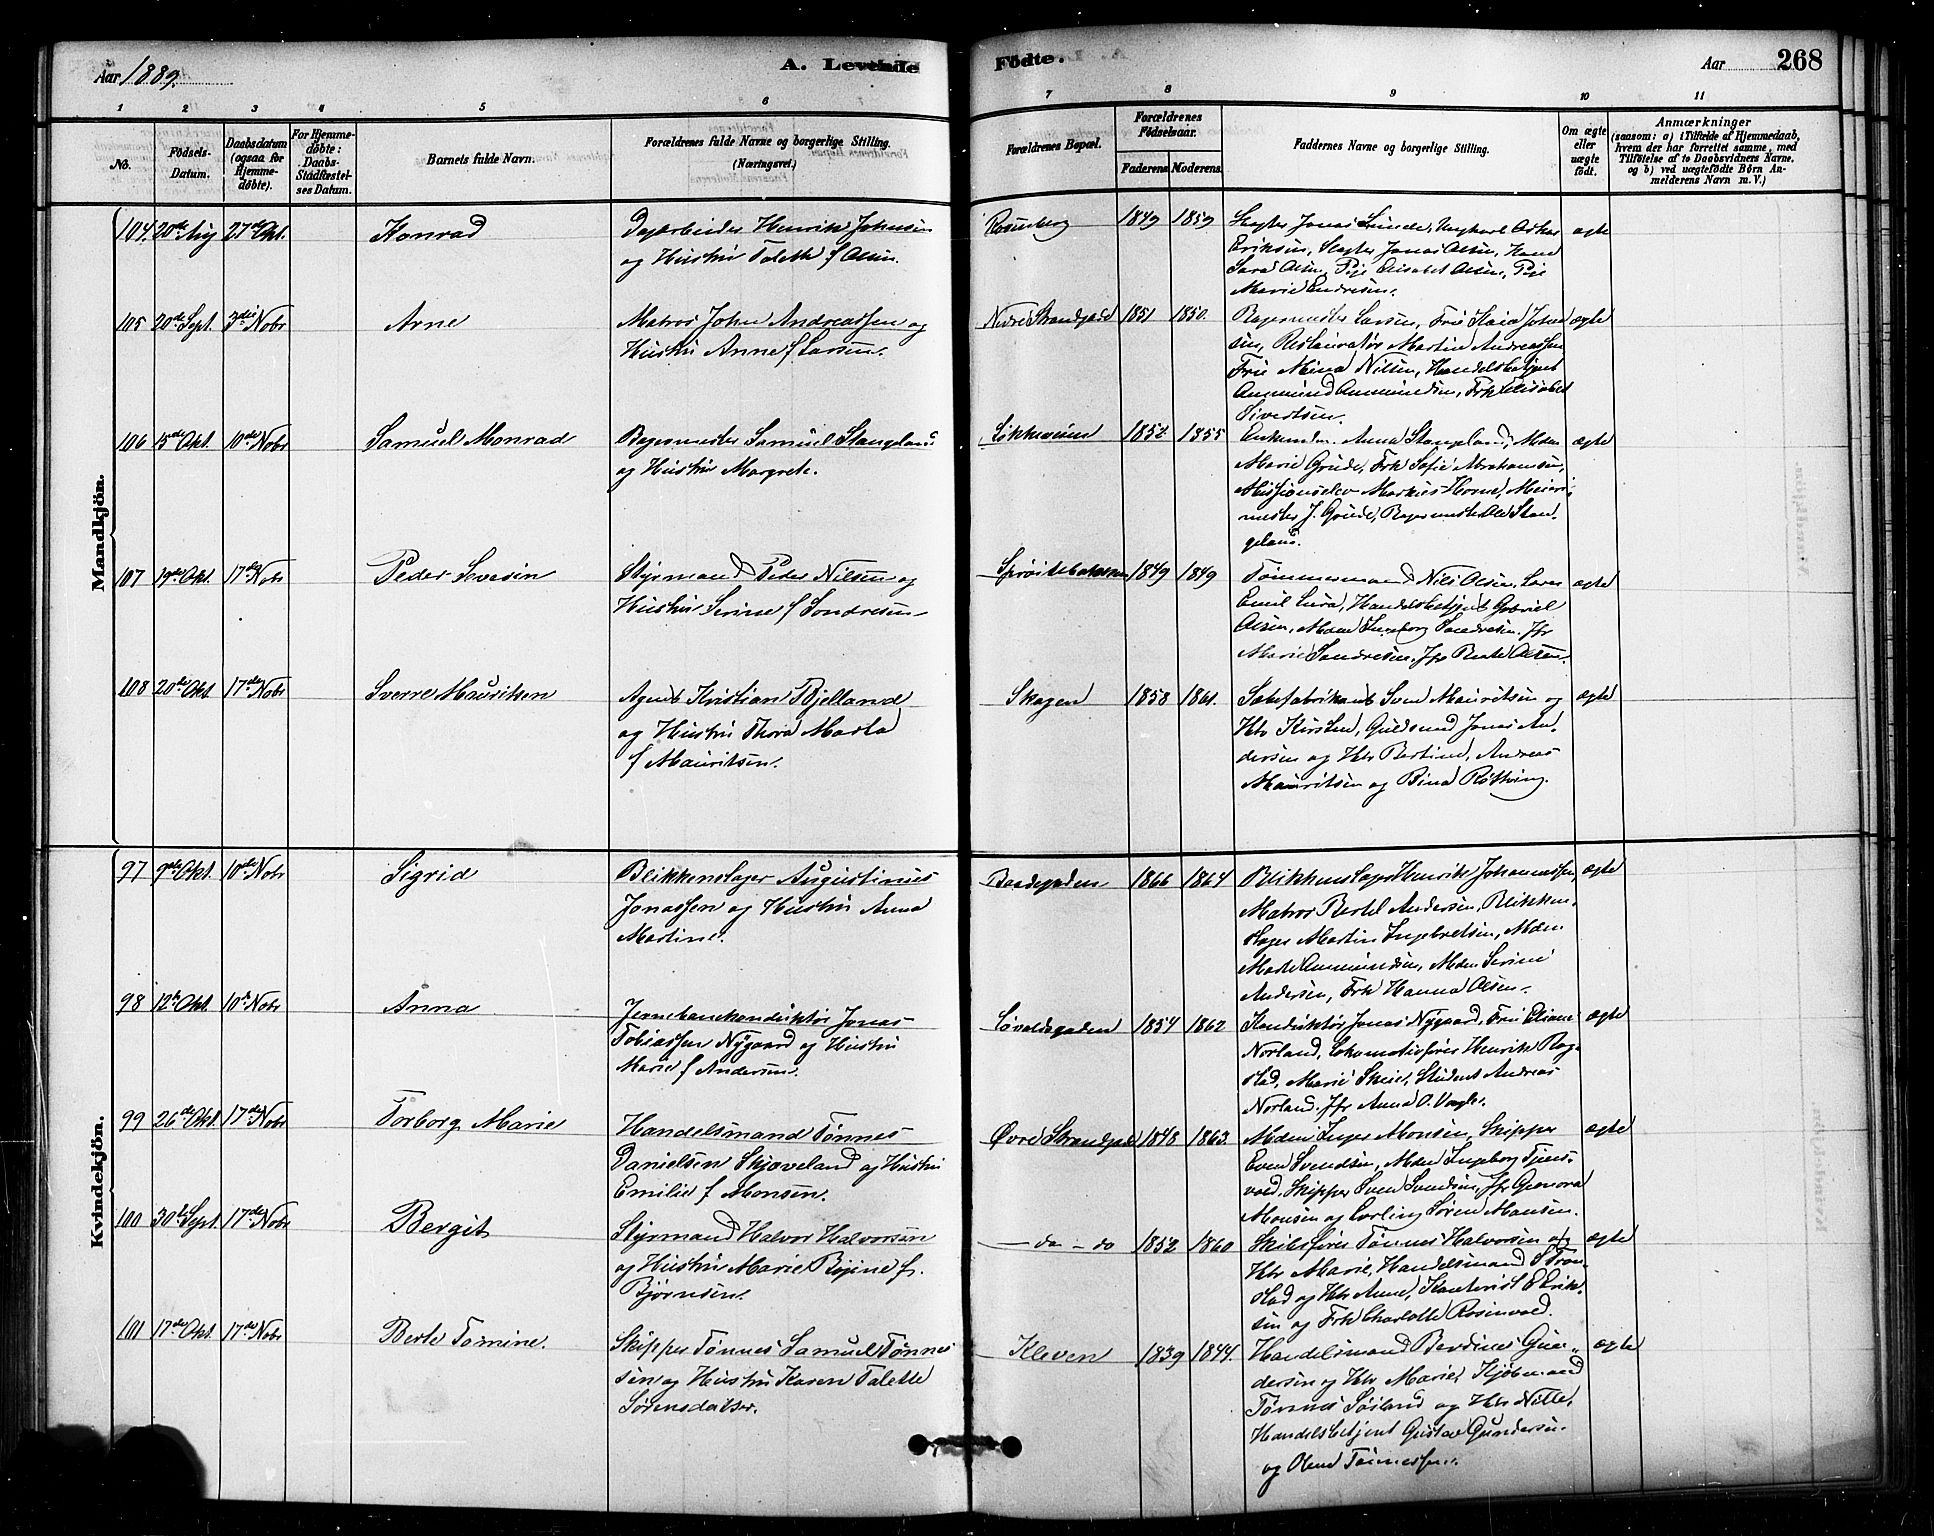 Aar 1889.
A. Levende
Födte.
Aar
268
1
2
3
4
5
6
7
8
9
10
11
No.
Födsels-
Datum.
Daabsdatum
(ogsaa for
Hjemme-
døbte).
For Hjemme-
døbte:
Daabs-
Stadfæstel-
ses Datum.
Barnets fulde Navn.
Forældrenes fulde Navne og borgerlige Stilling.
(Næringsvei.)
Forældrenes Bopæl.
Forældrenes
Födselsaar.
Faderens
Moderens.
Faddernes Navne og borgerlige Stilling.
Om ægte
eller
uægte
født.
Anmærkninger
(saasom: a) i Tilfælde af Hjemmedaab,
hvem der har forrettet samme, med
Tilføielse af to Daabsvidners Navne,
og b) ved uægtefødte Börn An-
melderens Navn m. V.)
Mandkjön.
104. 20de Aug 27de Okt. Konrad
Dagarbeider Henrik Johnsen
og Hustru Talette f Olsen.
Rosenberg 1849 1859
Slagter Jonas Lunde, Oskar
Eriksen, Slagter Jonas Olsen,
Sara Olsen, Pige Elisabet Olsen, Pige
Marie Endresen.
ægte
105 20de Sept. 3die Nobr Arne
Matros John Andreassen og
Hustru Anne f Larsen.
Nedre Strandgade 1851 1850.
Bagermester Larsen, Fru Kaia John
sen, Restauratør Martin Andreassen
Fru Mina Nilsen, Handelsbetjent
Ommund Ommundsen, Frk Elisabet
Sivertsen.
ægte
106 15de Okt. 10de Nobr Samuel Monrad
Bagermester Samuel Stangeland
og Hustru Margrete.
Løkkeveien 1852 1855
Enkemdm. Anna Stangeland, Mdm
Marie Grude, Frk Sofie Abrahamsen,
Missionselev Markus Horne, Meieri-
mester J. Grude, Bagermester Ole Stan-
geland.
ægte
107 19de Okt. 17de Nobr Peder Severin
Styrmand Peder Nilsen og
Hustru Serine f Sondresen
Sprøitebakken 1849 1849
Tømmermand Nils Olsen, Lars
Emil Lura, Handelsbetjent Gabriel
Olsen, Mdm Ingeborg Sondresen. Jfr
Marie Sondresen. Jfr Berte Olsen.
ægte
108 20de Okt 17de Nobr Sverre Mauritsen
Agent Kristian Bjelland
og Hustru Thora Marta
f Mauritsen.
Skagen 1858 1861.
Sæbefabrikant Sven Mauritsen og
Htr Kirsten, Guldsmed Jonas An
dersen og Htr Bertine, Andreas
Mauritsen og Bina Røttving.
ægte
Kvindekjön.
97 9de Okt. 10de Nobr Sigrid
Blikkenslager Augustinus
Jonassen og Hustru Anna
Martine.
Bredegaden 1866 1864
Blikkenslager Henrik Johannessen,
Matros Bertel Andersen, Blikken-
slager Martin Ingebretsen, Mdm
Marte Ommundsen, Mdm Serine
Andersen, Frk Hanna Olsen.
ægte
98 12te Okt. 10de Nobr Anna
Jernbanekonduktør Jonas
Tobiassen Nygaard og Hustru
Marie f Andersen.
Løvoldsgaden 1854 1862
Konduktør Jonas Nygaard, Fru Eliane
Norland, Lokomotivfører Henrik Rog-
stad, Marie Skeie, Student Andreas
Norland. Jfr Anna O. Vagle.
ægte
99 26de Okt 17de Nobr Torborg Marie
Handelsmand Tønnes
Danielsen Skjæveland og Hustru
Emilie f Monsen.
Øvre Strandgade 1848 1863.
Mdm Inger Monsen, Skipper
Even Svendsen, Mdm Ingeborg Tjens-
vold, Skipper Sven Svendsen, Jfr Genora
Monsen og Erling Søren Monsen.
ægte
100 30te Sept. 17de Nobr Bergit
Styrmand Halvor Halvorsen
og Hustru Marie Bojine f.
Bjørnsen.
— do — do 1852 1860
Skibsfører Tønnes Halvorsen og
Htr Marie, Handelsmand S Tron-
stad og Htr Anne, Kontorist E Erik-
sen og Frk Charlotte Rosenvold.
ægte
101 17de Okt. 17de Nobr Berte Tomine.
Skipper Tønnes Samuel Tønnes
sen og Hustru Karen Talette
Sørensdatter.
Kleven 1839 1844.
Handelsmand Berdines Gun-
dersen og Htr Marie, Kjøbmand
Tønnes Søiland og Htr Nille,
Handelsbetjent Gustav Gundersen
og Olene Tønnessen.
ægte